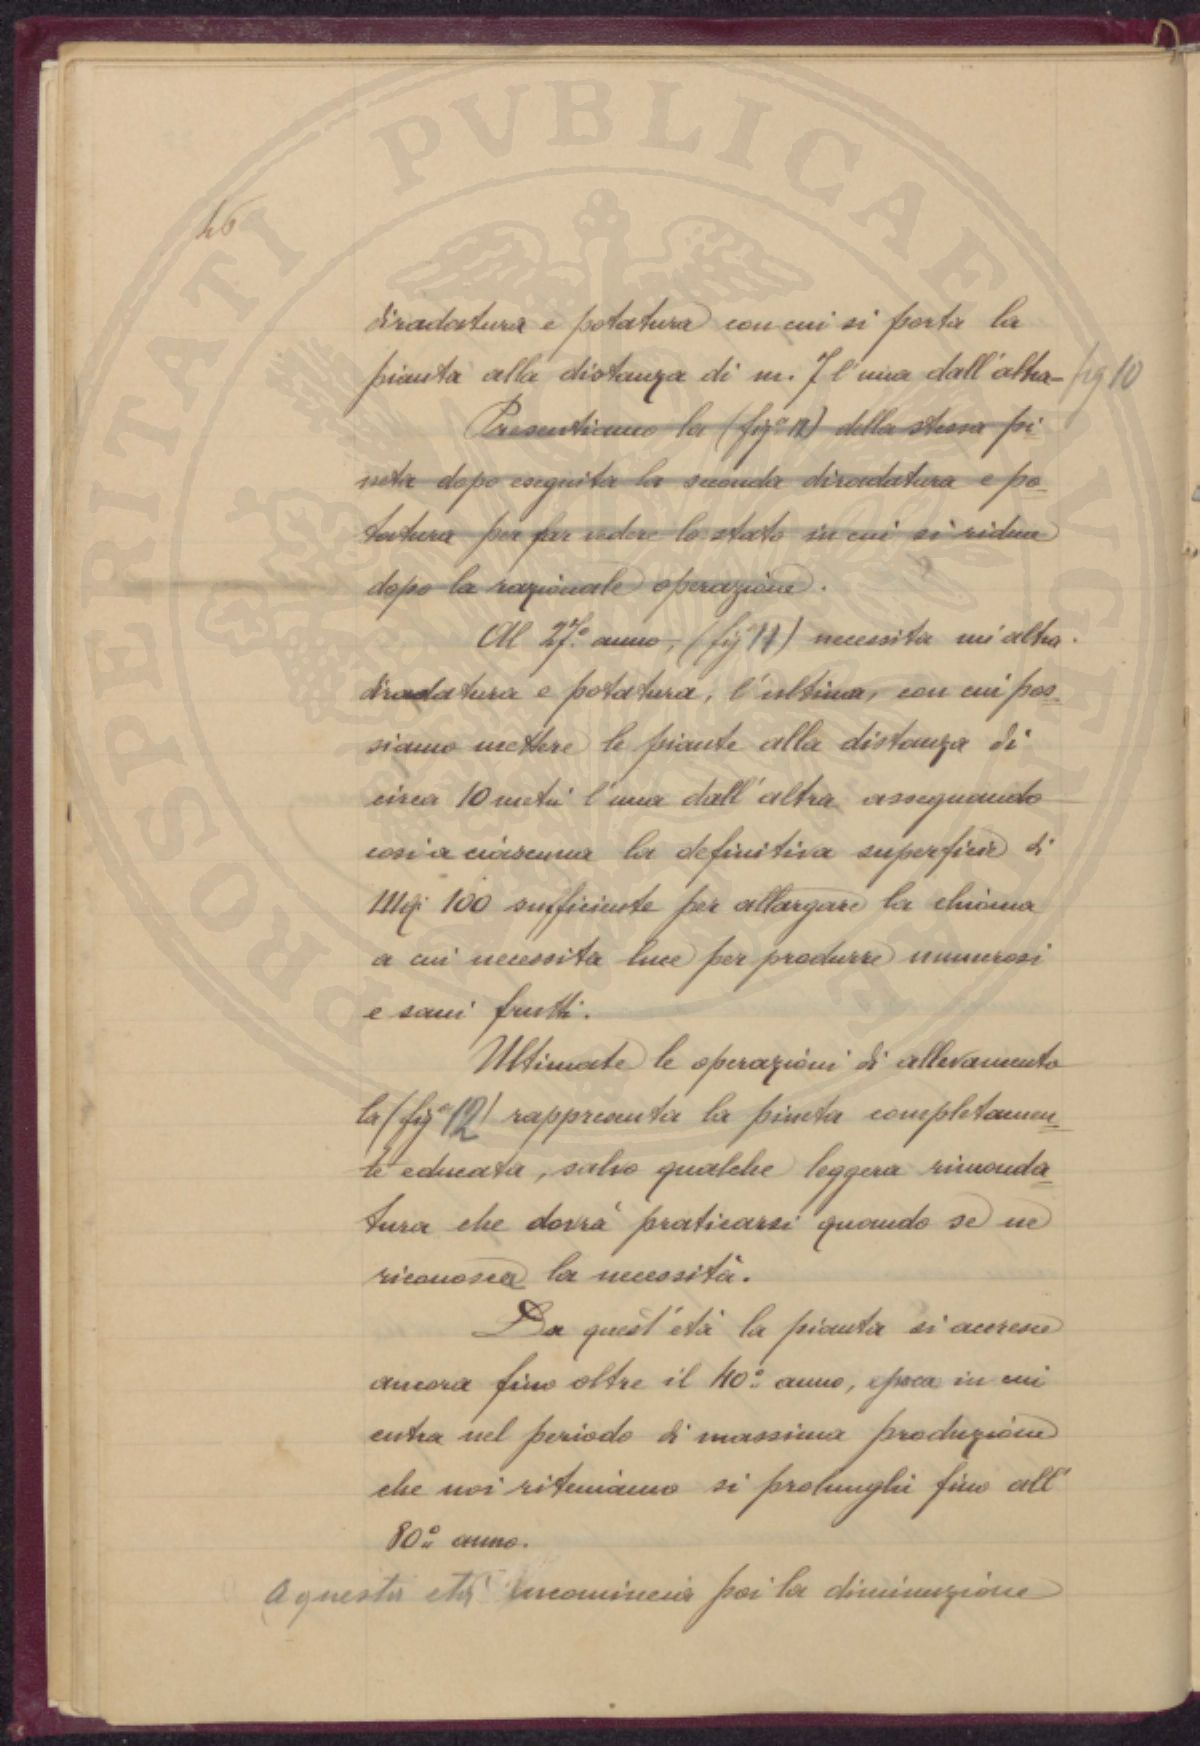 46
PROSPERITATI PVBLICAE AVGENDAE
diradatura e potatura con cui si porta la
pianta alla distanza di m. 7 l'una dall'altra- fig 10
Presentiamo la (figª 12) della stessa pi
neta dopo eseguita la seconda diradatura e po=
tatura per far vedere lo stato in cui si riduce
dopo la razionale operazione.
Al 27.º anno, (fig 11) necessita un'altra
diradatura e potatura, l'ultima, con cui pos=
siamo mettere le piante alla distanza di
circa 10 metri l'una dall'altra assegnando
così a ciascuna la definitiva superficie di
Mq. 100 sufficiente per allargare la chioma
a cui necessita luce per produrre numerosi
e sani frutti.
Ultimate le operazioni di allevamento
la (figª 12) rappresenta la pineta completamen=
te educata, salvo qualche leggera rimonda=
tura che dovrà praticarsi quando se ne
riconosca la necessità.
Da quest'età la pianta si accresce
ancora fino oltre il 40º anno, epoca in cui
entra nel periodo di massima produzione
che noi riteniamo si prolunghi fino all'
80º anno.
A questa età incomincia poi la diminuzione